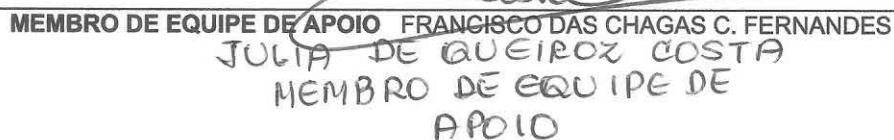 MEMBRO DE EQUIPE DE APOIO FRANCISCO DAS CHAGAS C. FERNANDES
JULIA DE QUEIROZ COSTA
MEMBRO DE EQUIPE DE
APOIO